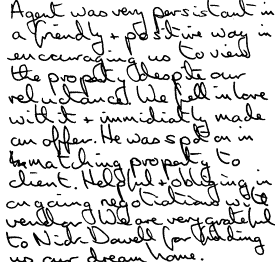 Agent was very persistant in
a friendly + positive way in
encouraging us to view
the property despite our
reluctance. We fell in love
with it + immidiatly made
an offer. He was spot on in
matching property to
client. Helpful + obliging in
ongoing negotiations with
vendor. We are very grateful
to Nick Dowell for finding
us our dream home.